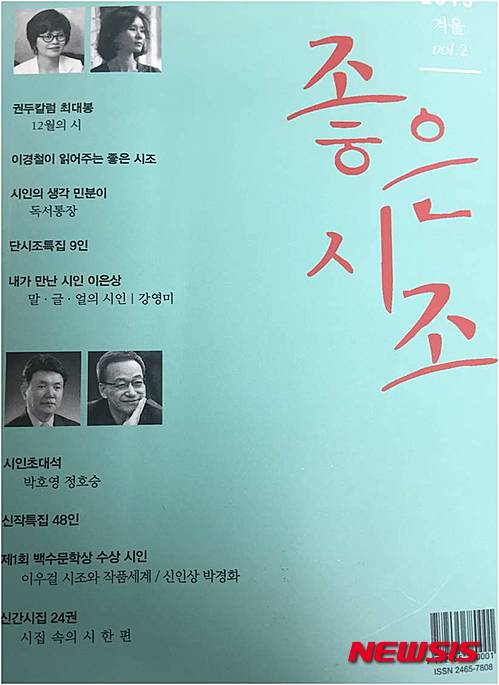 겨울
vol.2
좋은
시조
권두칼럼 최대봉
12월의 시
이경철이 읽어주는 좋은 시조
시인의 생각 민분이
독서통장
단시조특집 9인
내가 만난 시인 이은상
말·글·얼의 시인 | 강영미
시인초대석
박호영 정호승
신작특집 48인
제1회 백수문학상 수상 시인
이우걸 시조와 작품세계 / 신인상 박경화
신간시집 24권
시집 속의 시 한 편
NEWSIS
ISSN 2465-7808